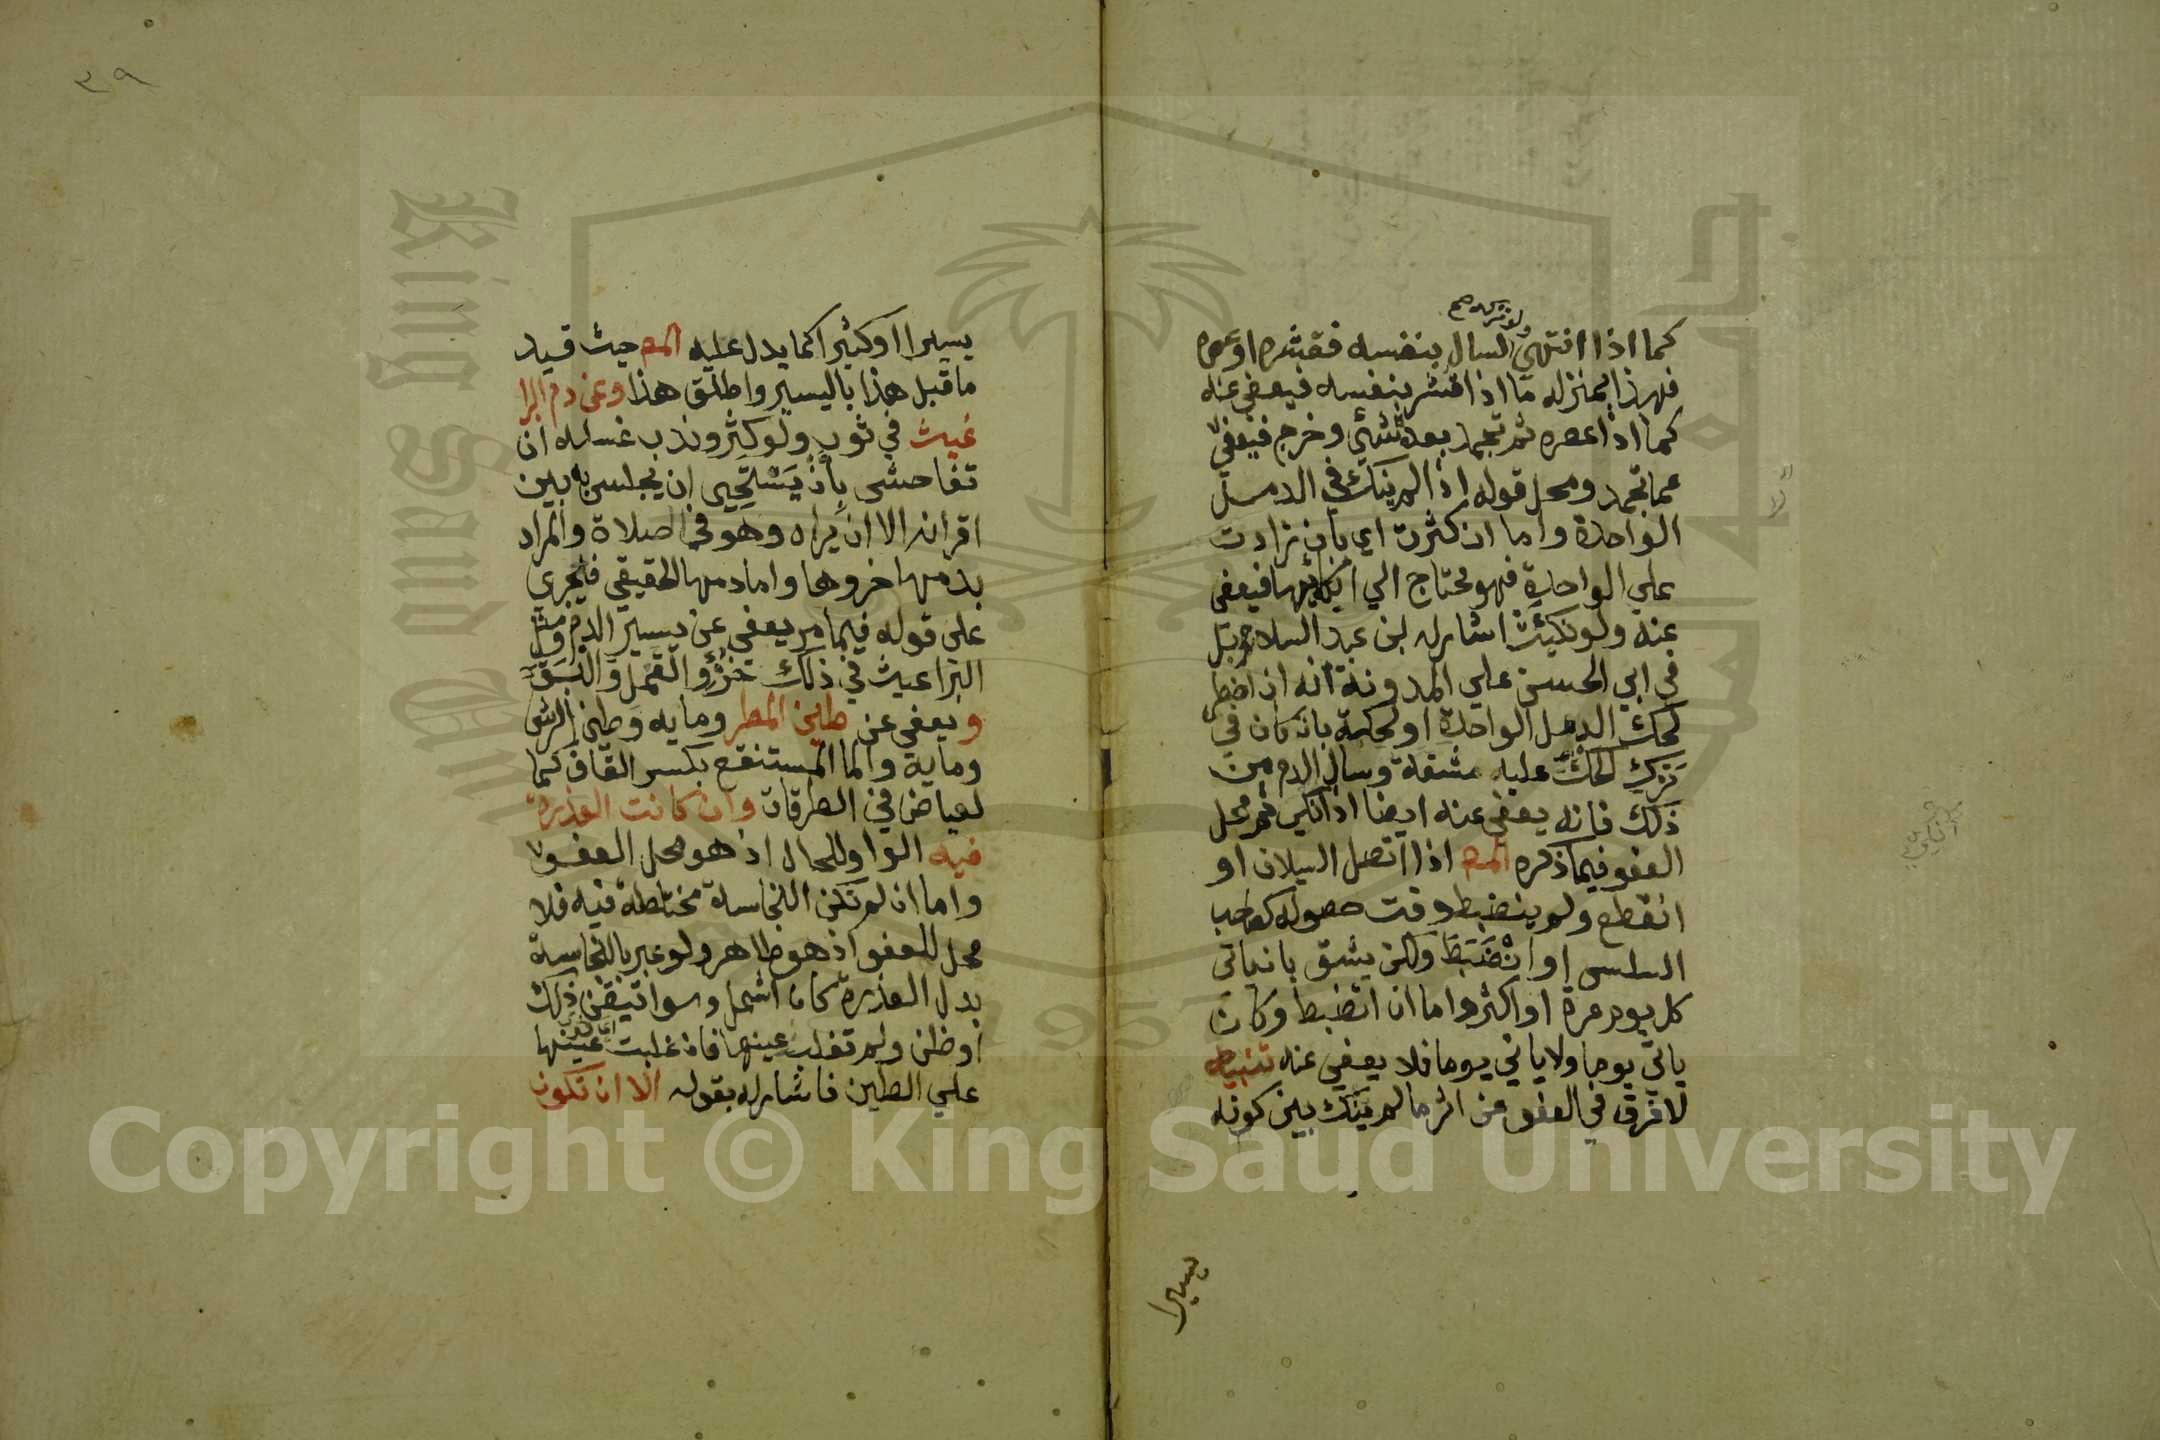 لو تركه صح
كما اذا انتهي ولسال بنفسه فقشره او عصره
فهذا بمنزله ما اذا قشر بنفسه فيعفى عنه
كما اذا عصره ثم تجمد بعده شئ وخرج فيعفي
عما تجمد ومحل قوله اذا لم ينك في الدمل
الواحدة واما ان كثرت اي بان زادت
علي الواحدة فهو محتاج الي انكائها فيعفى
عنه ولو نكيت اشار له ابن عبد السلام
في ابي الحسن علي المدونة انه ان اضطر
لحك الدمل الواحدة او لحكة بان كان في
ترك الحك عليه مشقة وسال الدم من
ذلك فانه يعفى عنه ايضا اذا نكي ثم محل
العفو فيما ذكره المص اذا اتصل السيلان او
انقطع ولم ينضبط وقت حصوله كصاحب
السلس او انضبط ولكن يشق بان ياتي
كل يوم مرة او اكثر واما ان انضبط وكان
ياتي يوما ولا ياتي يوما فلا يعفي عنه تنبيه
لا فرق في العفو عن اثر ما لم ينك بين كونه
يسيرا
٣٩
يسيرا او كثيرا كما يدل عليه المص حيث قيد
ما قبل هذا باليسير واطلق هذا وعن دم البرا
غيث في ثوب ولو كثر وندب غسله ان
تفاحش بان يستحيي ان يجلس به بين
اقرانه الا ان يراه وهو في الصلاة والمراد
بدمها خروها واما دمها الحقيقي فيجري
على قوله فيما مر يعفي عن يسير الدم ومثل
البراغيث في ذلك خرؤ القمل والبق
و يعفي عن طين المطر ومايه وطين الرش
ومايه والما المستنقع بكسر القاف كما
لعياض في الطرقات وان كانت العذرة
فيه الواو للحال اذ هو محل العفو
واما ان لم تكن النجاسة مختلطة فيه فلا
محل للعفو اذ هو طاهر ولو عبر بالنجاسة
بدل العذرة كان اشمل وسوا تيقن ذلك
او ظن ولم تغلب عينها فان غلبت اي كثر عينها
علي الطين فاشار له بقوله الا ان تكون
Copyright © King Saud University
King Saud University
جامعة الملك سعود
1957